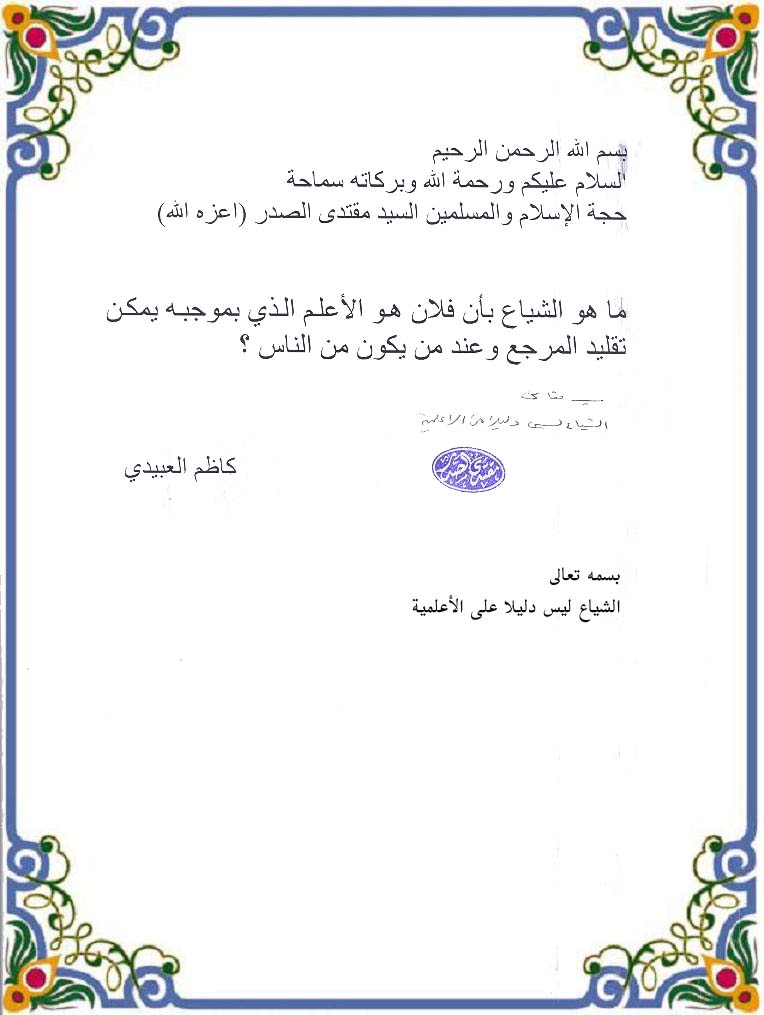 بسم الله الرحمن الرحيم
السلام عليكم ورحمة الله وبركاته سماحة
حجة الإسلام والمسلمين السيد مقتدى الصدر (اعزه الله)
ما هو الشياع بأن فلان هو الأعلم الذي بموجبه يمكن
تقليد المرجع وعند من يكون من الناس ؟
بسمه تعالى
الشياع ليس دليلا على الأعلمية
كاظم العبيدي
بسمه تعالى
الشياع ليس دليلا على الأعلمية